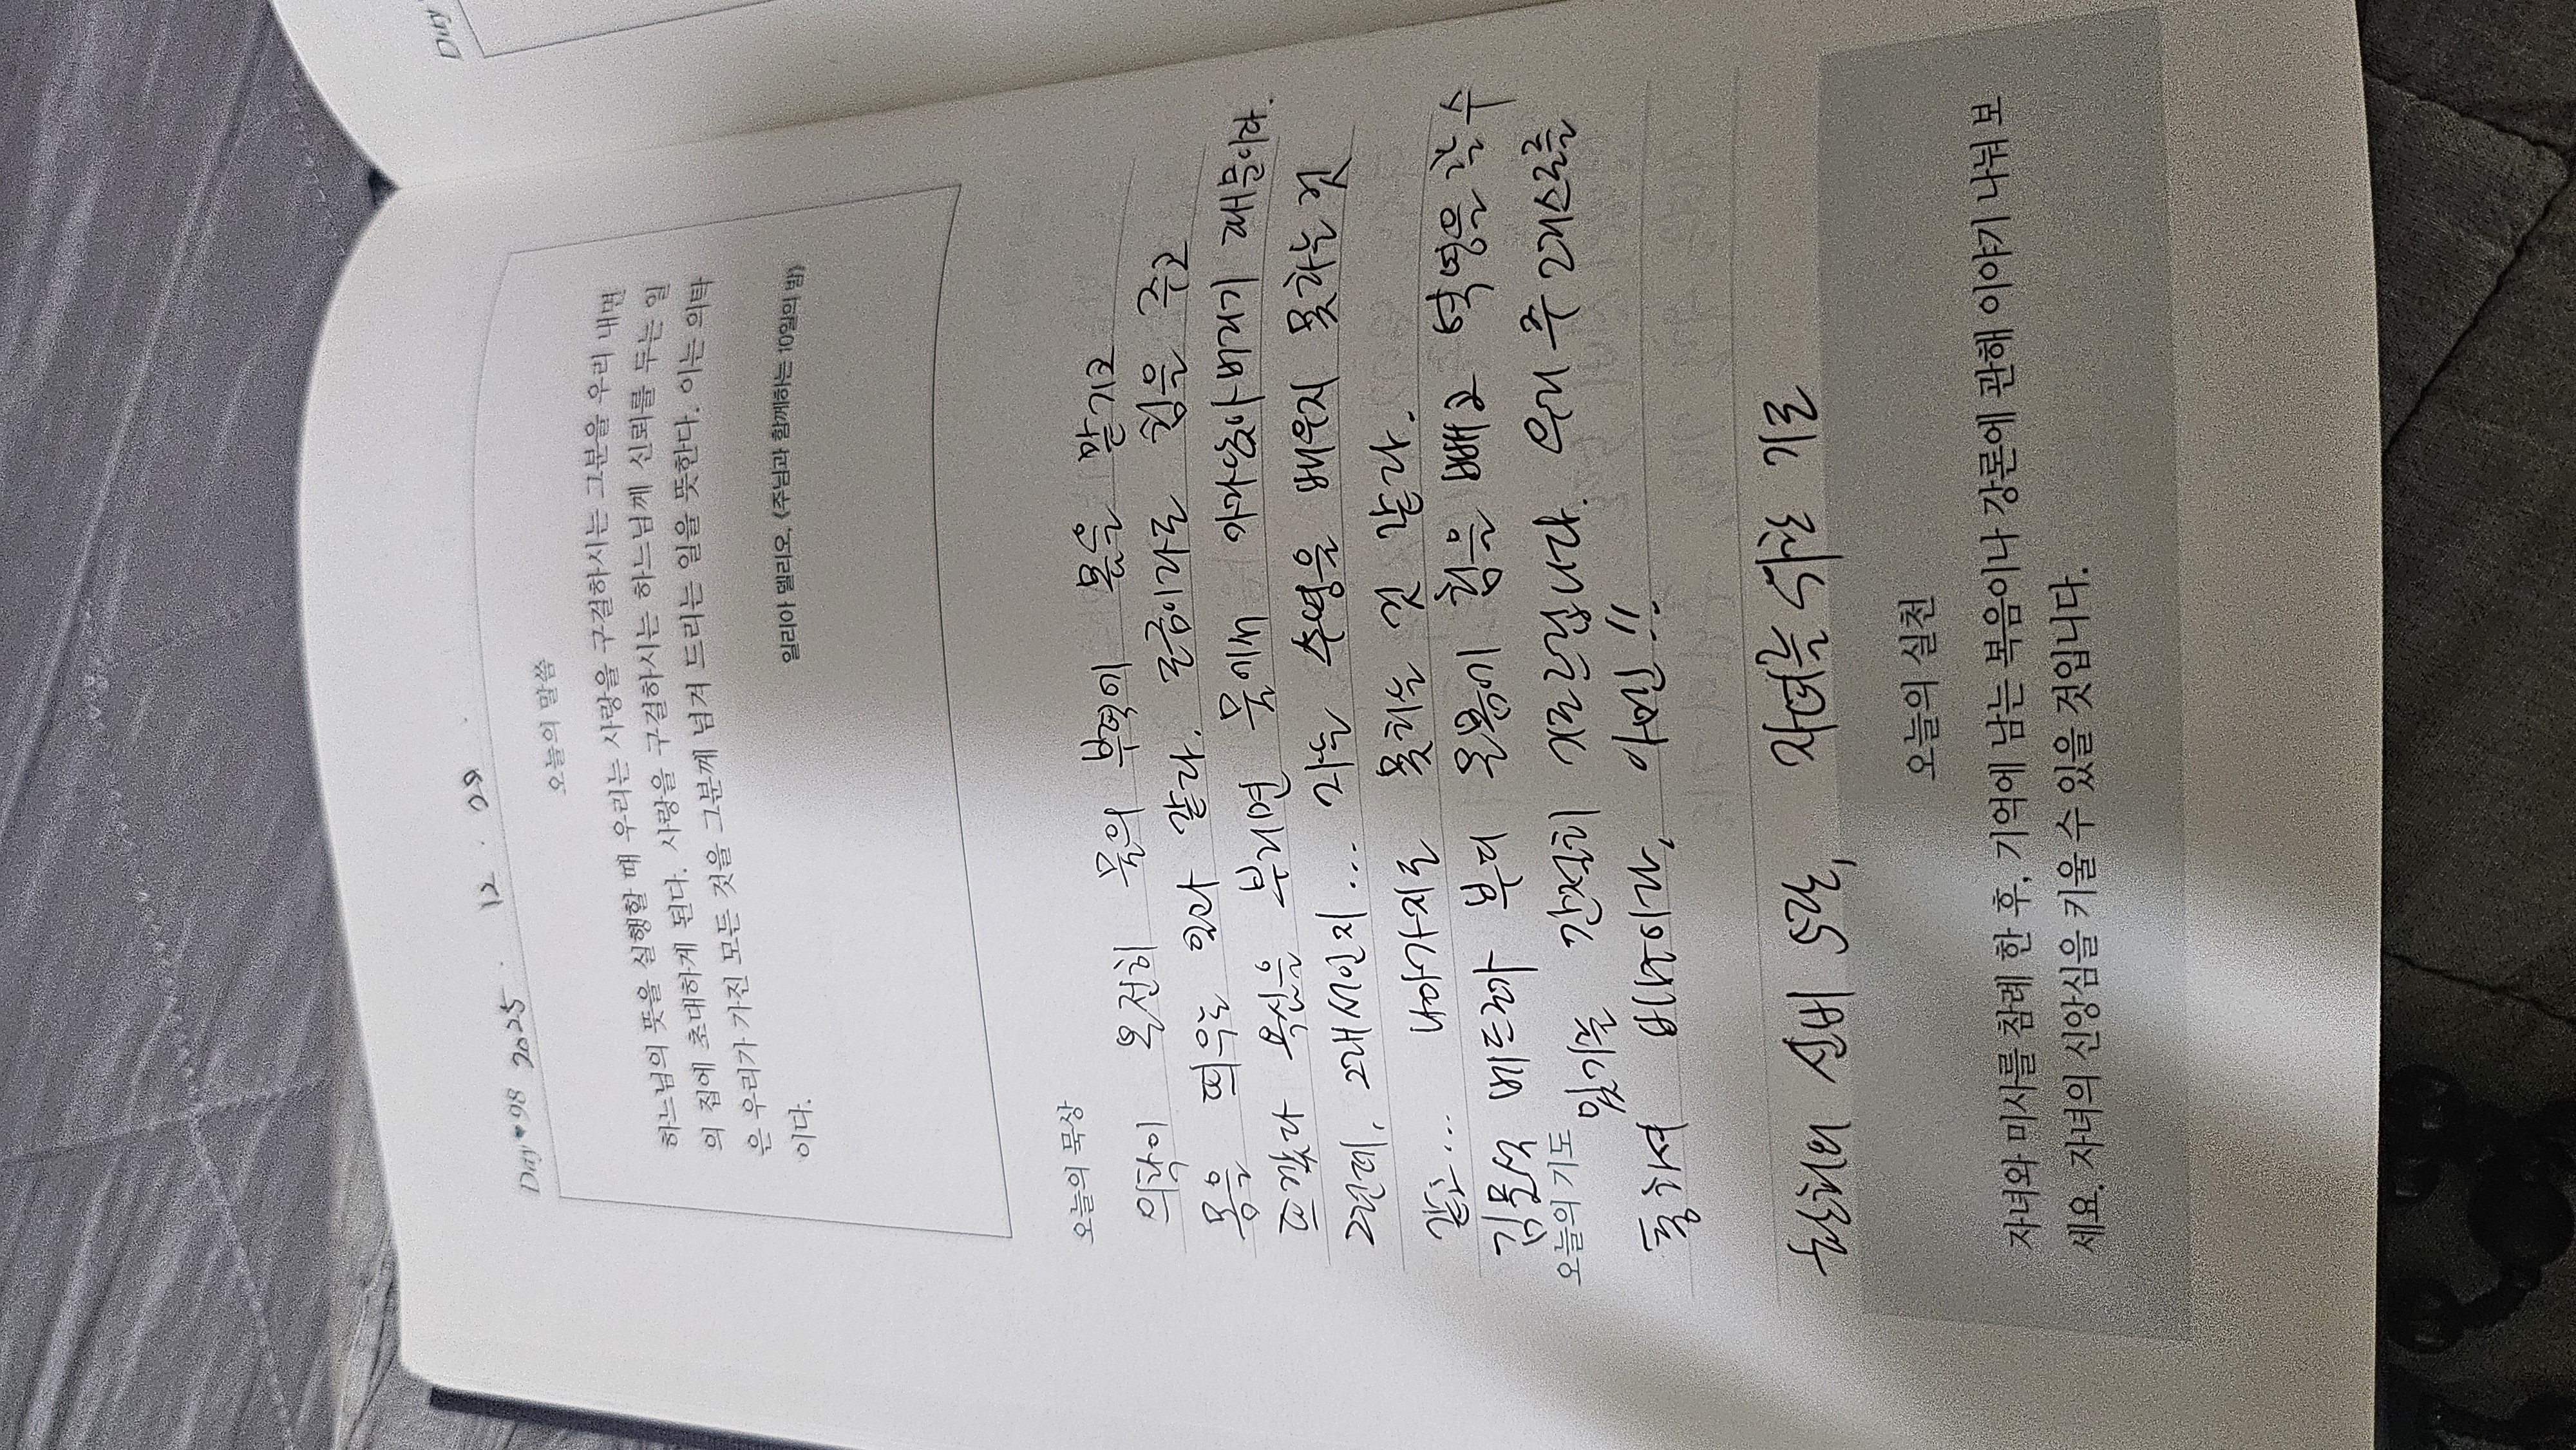 Day
Day ♥ 98 2025. 12. 09.
오늘의 말씀
하느님의 뜻을 실행할 때 우리는 사랑을 구걸하시는 그분을 우리 내면
의 집에 초대하게 된다. 사랑을 구걸하시는 하느님께 신뢰를 두는 일
은 우리가 가진 모든 것을 그분께 넘겨 드리는 일을 뜻한다. 이는 의탁
이다.
일리아 델리오, 《주님과 함께하는 10일의 밤》
오늘의 묵상
의탁이 온전히 물의 부력에 몸을 맡기고
몸을 띄우는 일과 같다. 조금이라도 힘을 주고
조깠다 욕심을 부리면 물에서 가라앉아버리기 때문이다.
그런데, 그래서인지... 나는 수영을 배우지 못하는 것
같고... 나아가지를 못하는 것 같다.
김문석 베드로가 부디 온몸에 힘을 빼고 헉헝을 할 수
오늘의 기도
있기를 간절히 기도합니다. 우리 주 그리스도를
통하여 비나이다, 아멘!!
천천히 오래, 자녀를 위한 기도
오늘의 실천
자녀와 미사를 참례 한 후, 기억에 남는 복음이나 강론에 관해 이야기 나눠 보
세요. 자녀의 신앙심을 키울 수 있을 것입니다.